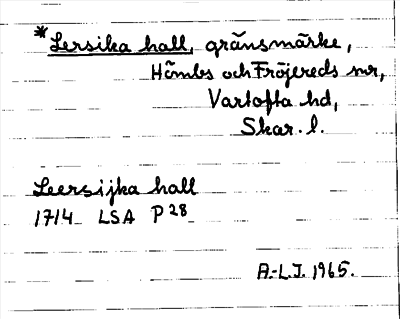 *Lersika hall, gränsmärke,
Hömbs och Fröjereds snr,
Vartofta hd,
Skar. l.
Leersijka hall
1714 LSA P28
A.-L.J. 1965.